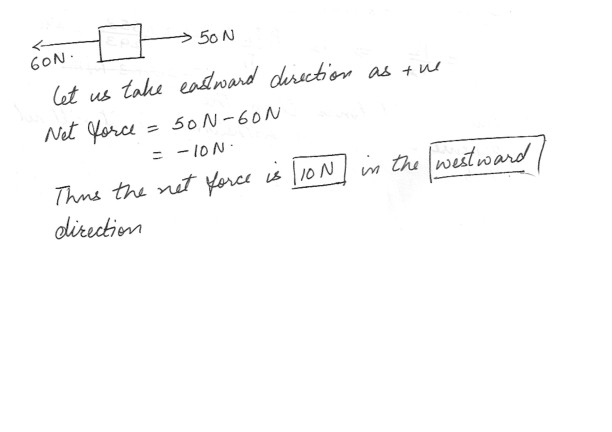 50N
60N.
Let us take eastward direction as +ve
Net force = 50N-60N
= -10N.
Thus the net force is 10N in the westward
direction